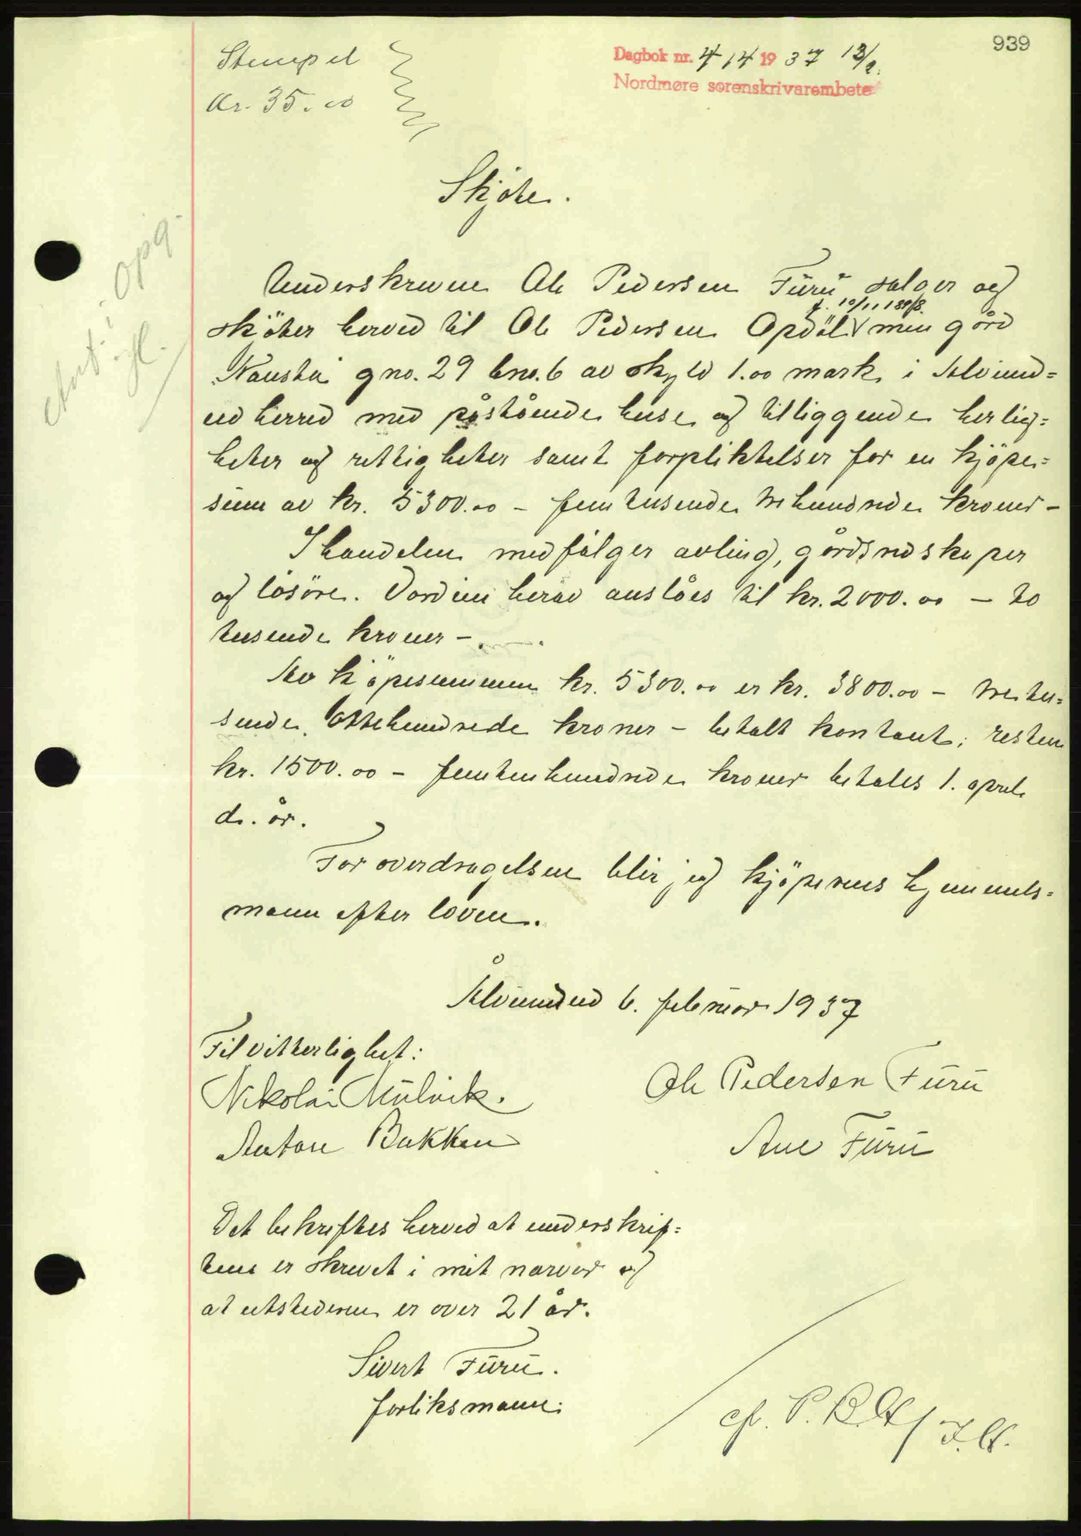 939
Stempel
kr. 35.00
Dagbok nr. 414 1937 13/2.
Nordmøre sorenskrivarembete
Skjøte.
Underskrevne Ole Pedersen Furu selger og
f. 10/11 1898.
skjöter herved til Ole Pedersen Opdöl √ min gård
"Nausta" gno. 29 bno. 6 av skyld 1.00 mark i Ålvund=
eid herred med påstående huse og tilliggende herlig=
heter og rettigheter samt forpliktelser for en kjöpe=
sum av kr. 5300.00 – femtusende trehundrede kroner –
I handelen medfölger avling, gårdsredskaper
og lösöre. Verdien herav anslåes til kr. 2000.00 – to
tusende kroner –
Av kjöpesummen kr. 5300.00 er kr. 3800.00 – tretu=
sende ottehundrede kroner – betalt kontant; resten
kr. 1500.00 – femtenhundrede kroner betales 1. april
d. år.
For overdragelsen blir jeg kjöperens hjemmels=
mann efter loven.
Ålvundeid 6. februar 1937
Til vitterlighet:
Nikolai Mulvik.
Anton Bakken
Ole Pedersen Furu
Ane Furu
Det bekreftes herved at underskrif=
tene er skrevet i mit nærvær og
at utstederne er over 21 år.
Sivert Furu.
forliksmann.